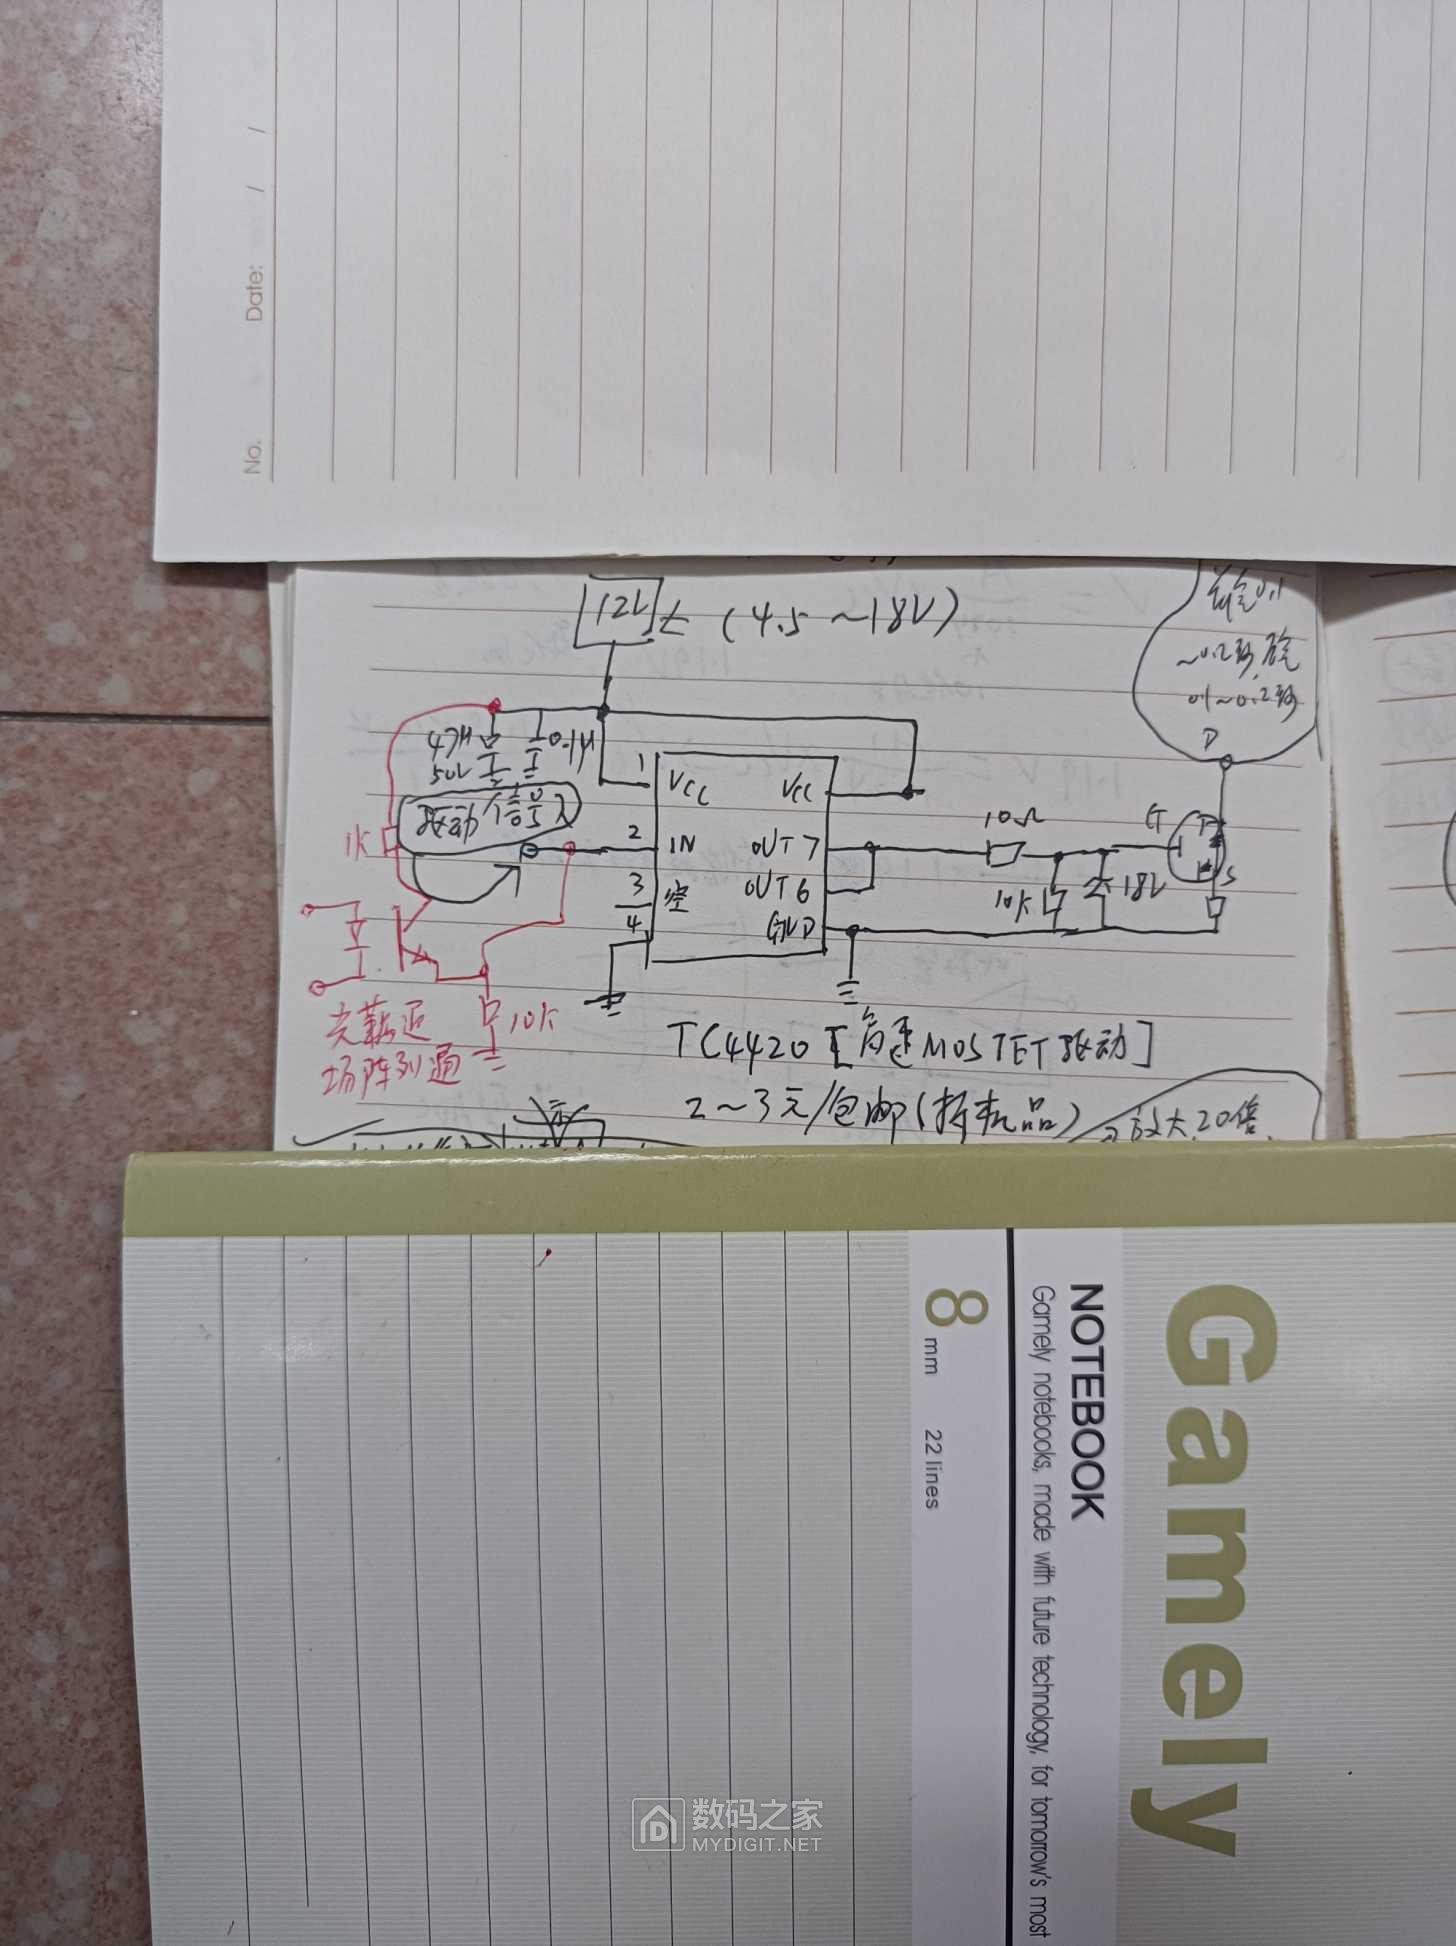 No.
Date: / /
12V
(4.5~18V)
0.1
~0.2秒
0.1~0.2秒
D
47μ
50V
0.1μ
1
VCC
VCC
驱动信号入
1K
2
IN
OUT 7
10Ω
G
S
3
空
OUT 6
10K
18V
4
GND
光藕
场阵列通
10K
TC4420 [高速MOSTET驱动]
2~3元/包邮(拆机品)
放大20倍
Gamely
NOTEBOOK
Gamely notebooks, made with future technology, for tomorrow's most
8mm 22 lines
数码之家
MYDIGIT.NET